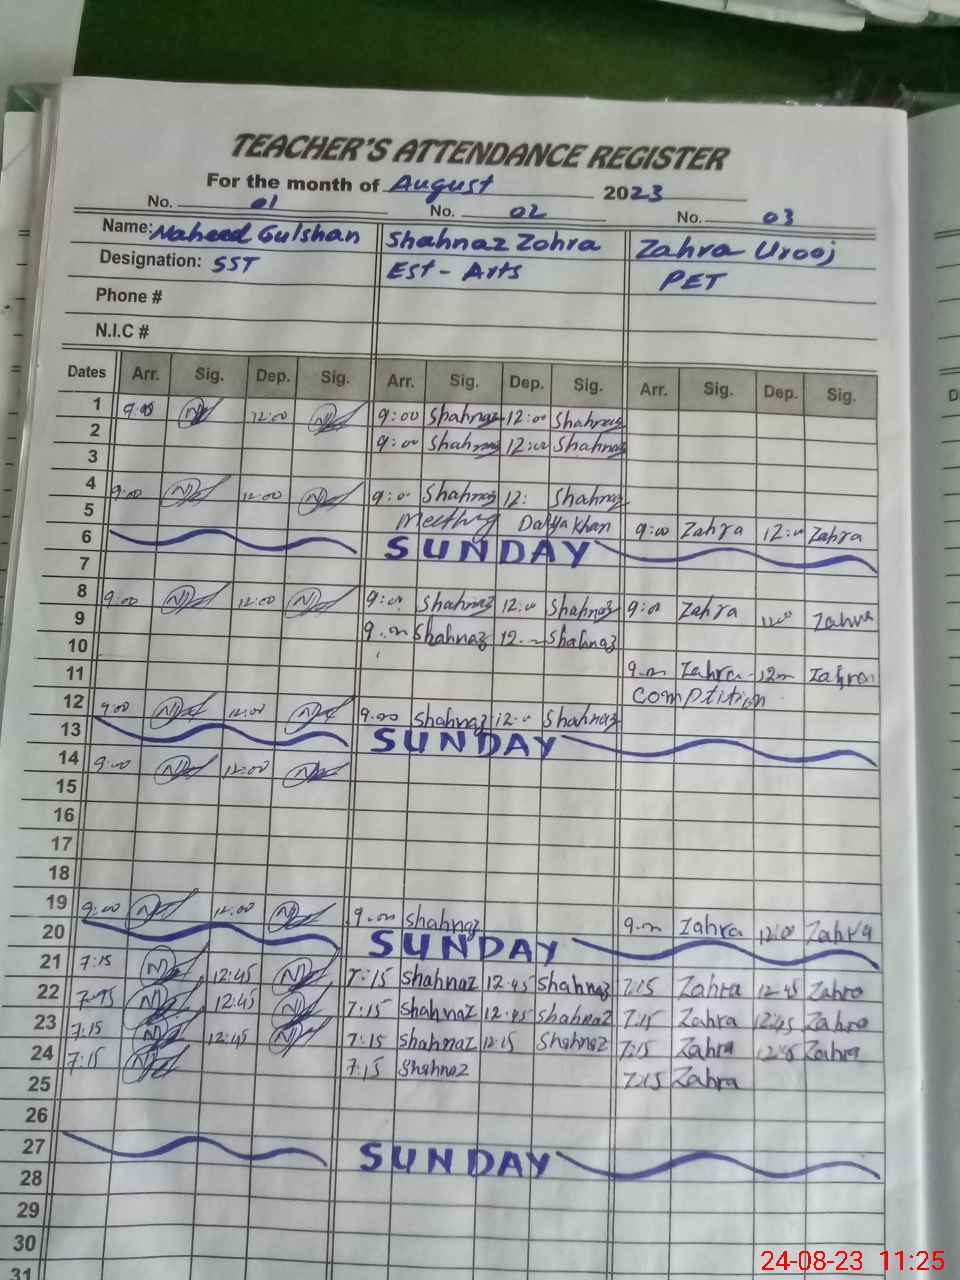 TEACHER'S ATTENDANCE REGISTER
For the month of August 2023
No. 01 No. 02 No. 03
Name: Naheed Gulshan Shahnaz Zohra Zahra Urooj
Designation: SST Est - Arts PET
Phone #
N.I.C #
Dates Arr. Sig. Dep. Sig. Arr. Sig. Dep. Sig. Arr. Sig. Dep. Sig.
1 12:00 9:00 Shahnaz 12:00 Shahnaz
2 9:00 Shahnaz 12:00 Shahnaz
3
4 9:00 12:00 9:00 Shahnaz 12: Shahnaz
5 meeting Darya Khan 9:00 Zahra 12:00 Zahra
6 SUNDAY
7
8 9:00 12:00 9:00 Shahnaz 12:00 Shahnaz 9:00 Zahra 12:00 Zahra
9 9:00 Shahnaz 12:00 Shahnaz
10
11 9:00 Zahra 12:00 Zahra
12 9:00 12:00 9:00 Shahnaz 12:00 Shahnaz Comptition
13 SUNDAY
14 9:00 12:00
15
16
17
18
19 9:00 12:00 9:00 Shahnaz 9:00 Zahra 12:00 Zahra
20 SUNDAY
21 7:15 12:45 7:15 Shahnaz 12:45 Shahnaz 7:15 Zahra 12:45 Zahra
22 12:45 7:15 Shahnaz 12:45 Shahnaz 7:15 Zahra 12:45 Zahra
23 7:15 12:45 7:15 Shahnaz 12:15 Shahnaz 7:15 Zahra 12:45 Zahra
24 7:15 7:15 Shahnaz 7:15 Zahra
25
26
27 SUNDAY
28
29
30
31
24-08-23 11:25